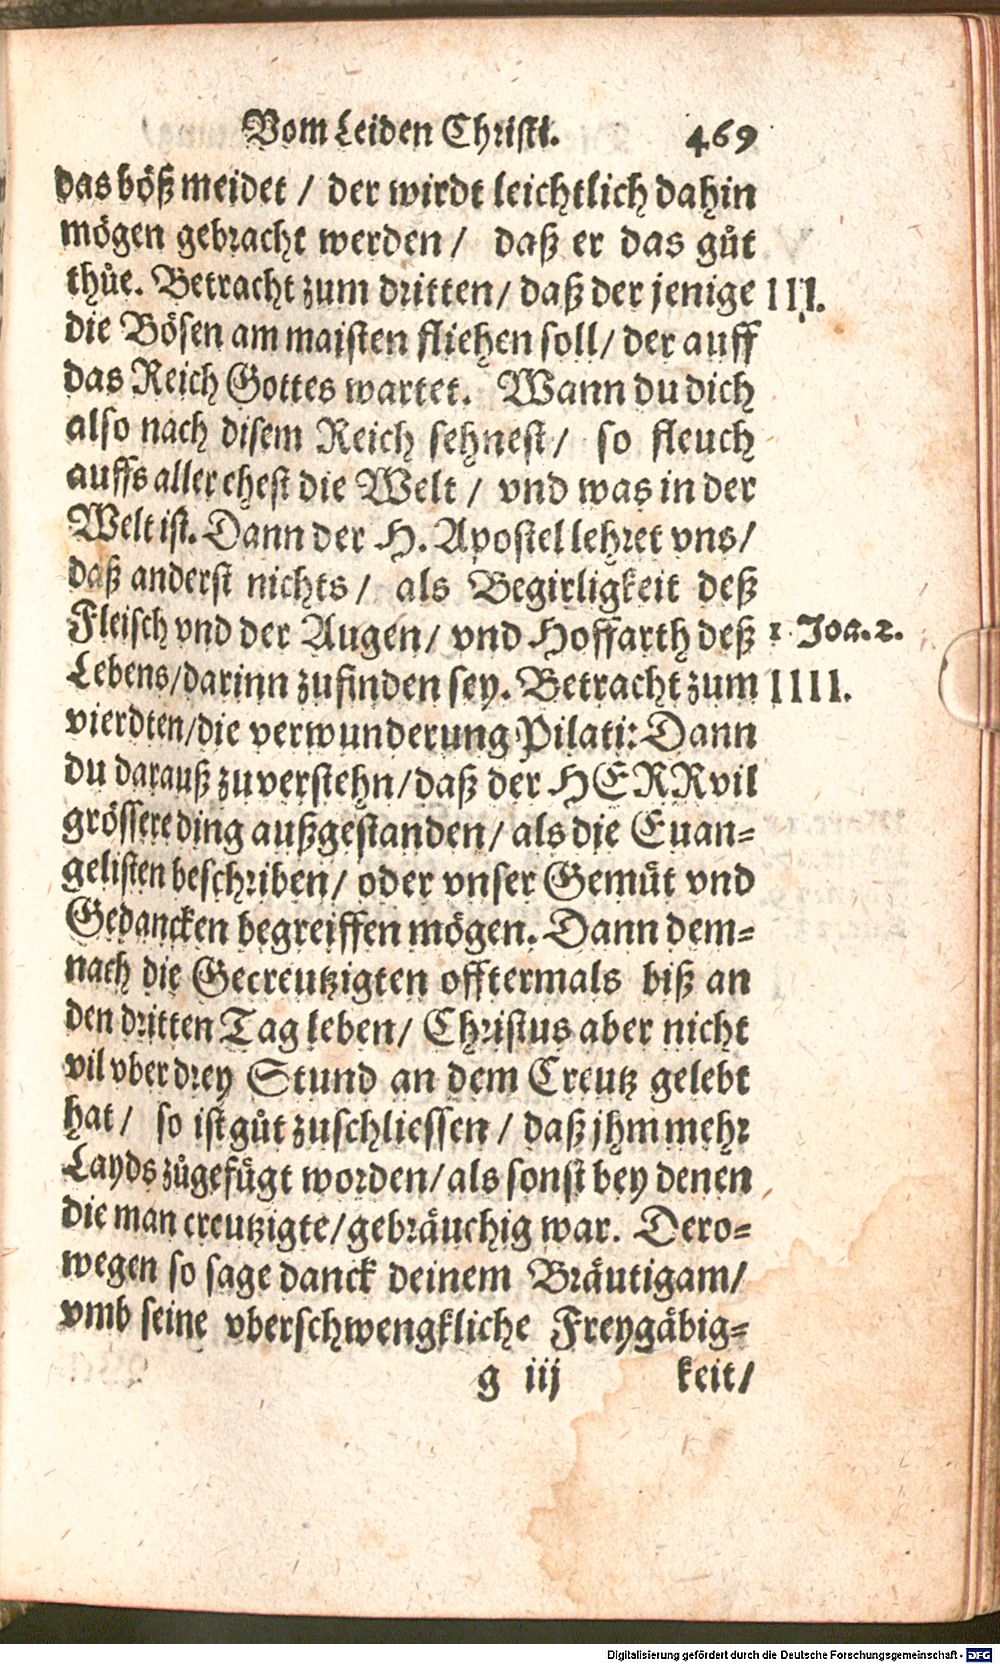 Vom Leiden Christi. 469
das böß meidet / der wirdt leichtlich dahin
mögen gebracht werden / daß er das gůt
thůe. Betracht zum dritten / daß der jenige III.
die Bösen am maisten fliehen soll / der auff
das Reich Gottes wartet. Wann du dich
also nach disem Reich sehnest / so fleuch
auffs aller ehest die Welt / vnd was in der
Welt ist. Dann der H. Apostel lehret vns /
daß anderst nichts / als Begirligkeit deß
Fleisch vnd der Augen / vnd Hoffarth deß 1. Joa. 2.
Lebens / darinn zufinden sey. Betracht zum IIII.
vierdten / die verwunderung Pilati: Dann
du darauß zuverstehn / daß der HERR vil
grössere ding außgestanden / als die Euan-
gelisten beschriben / oder vnser Gemüt vnd
Gedancken begreiffen mögen. Dann dem-
nach die Gecreutzigten offtermals biß an
den dritten Tag leben / Christus aber nicht
vil vber drey Stund an dem Creutz gelebt
hat / so ist gůt zuschliessen / daß jhm mehr
Layds zůgefügt worden / als sonst bey denen
die man creutzigte / gebräuchig war. Dero-
wegen so sage danck deinem Bräutigam /
vmb seine vberschwengkliche Freygäbig-
g iij keit /
Digitalisierung gefördert durch die Deutsche Forschungsgemeinschaft - DFG